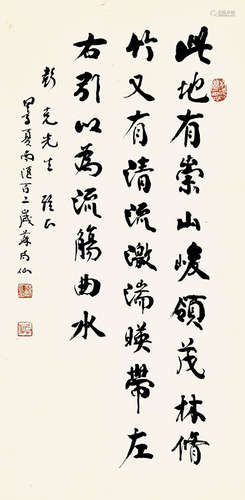 此地有崇山峻領茂林脩
竹又有清流激湍暎帶左
右引以為流觴曲水
彭克先生雅正
甲子夏南匯百二歲蘇局仙